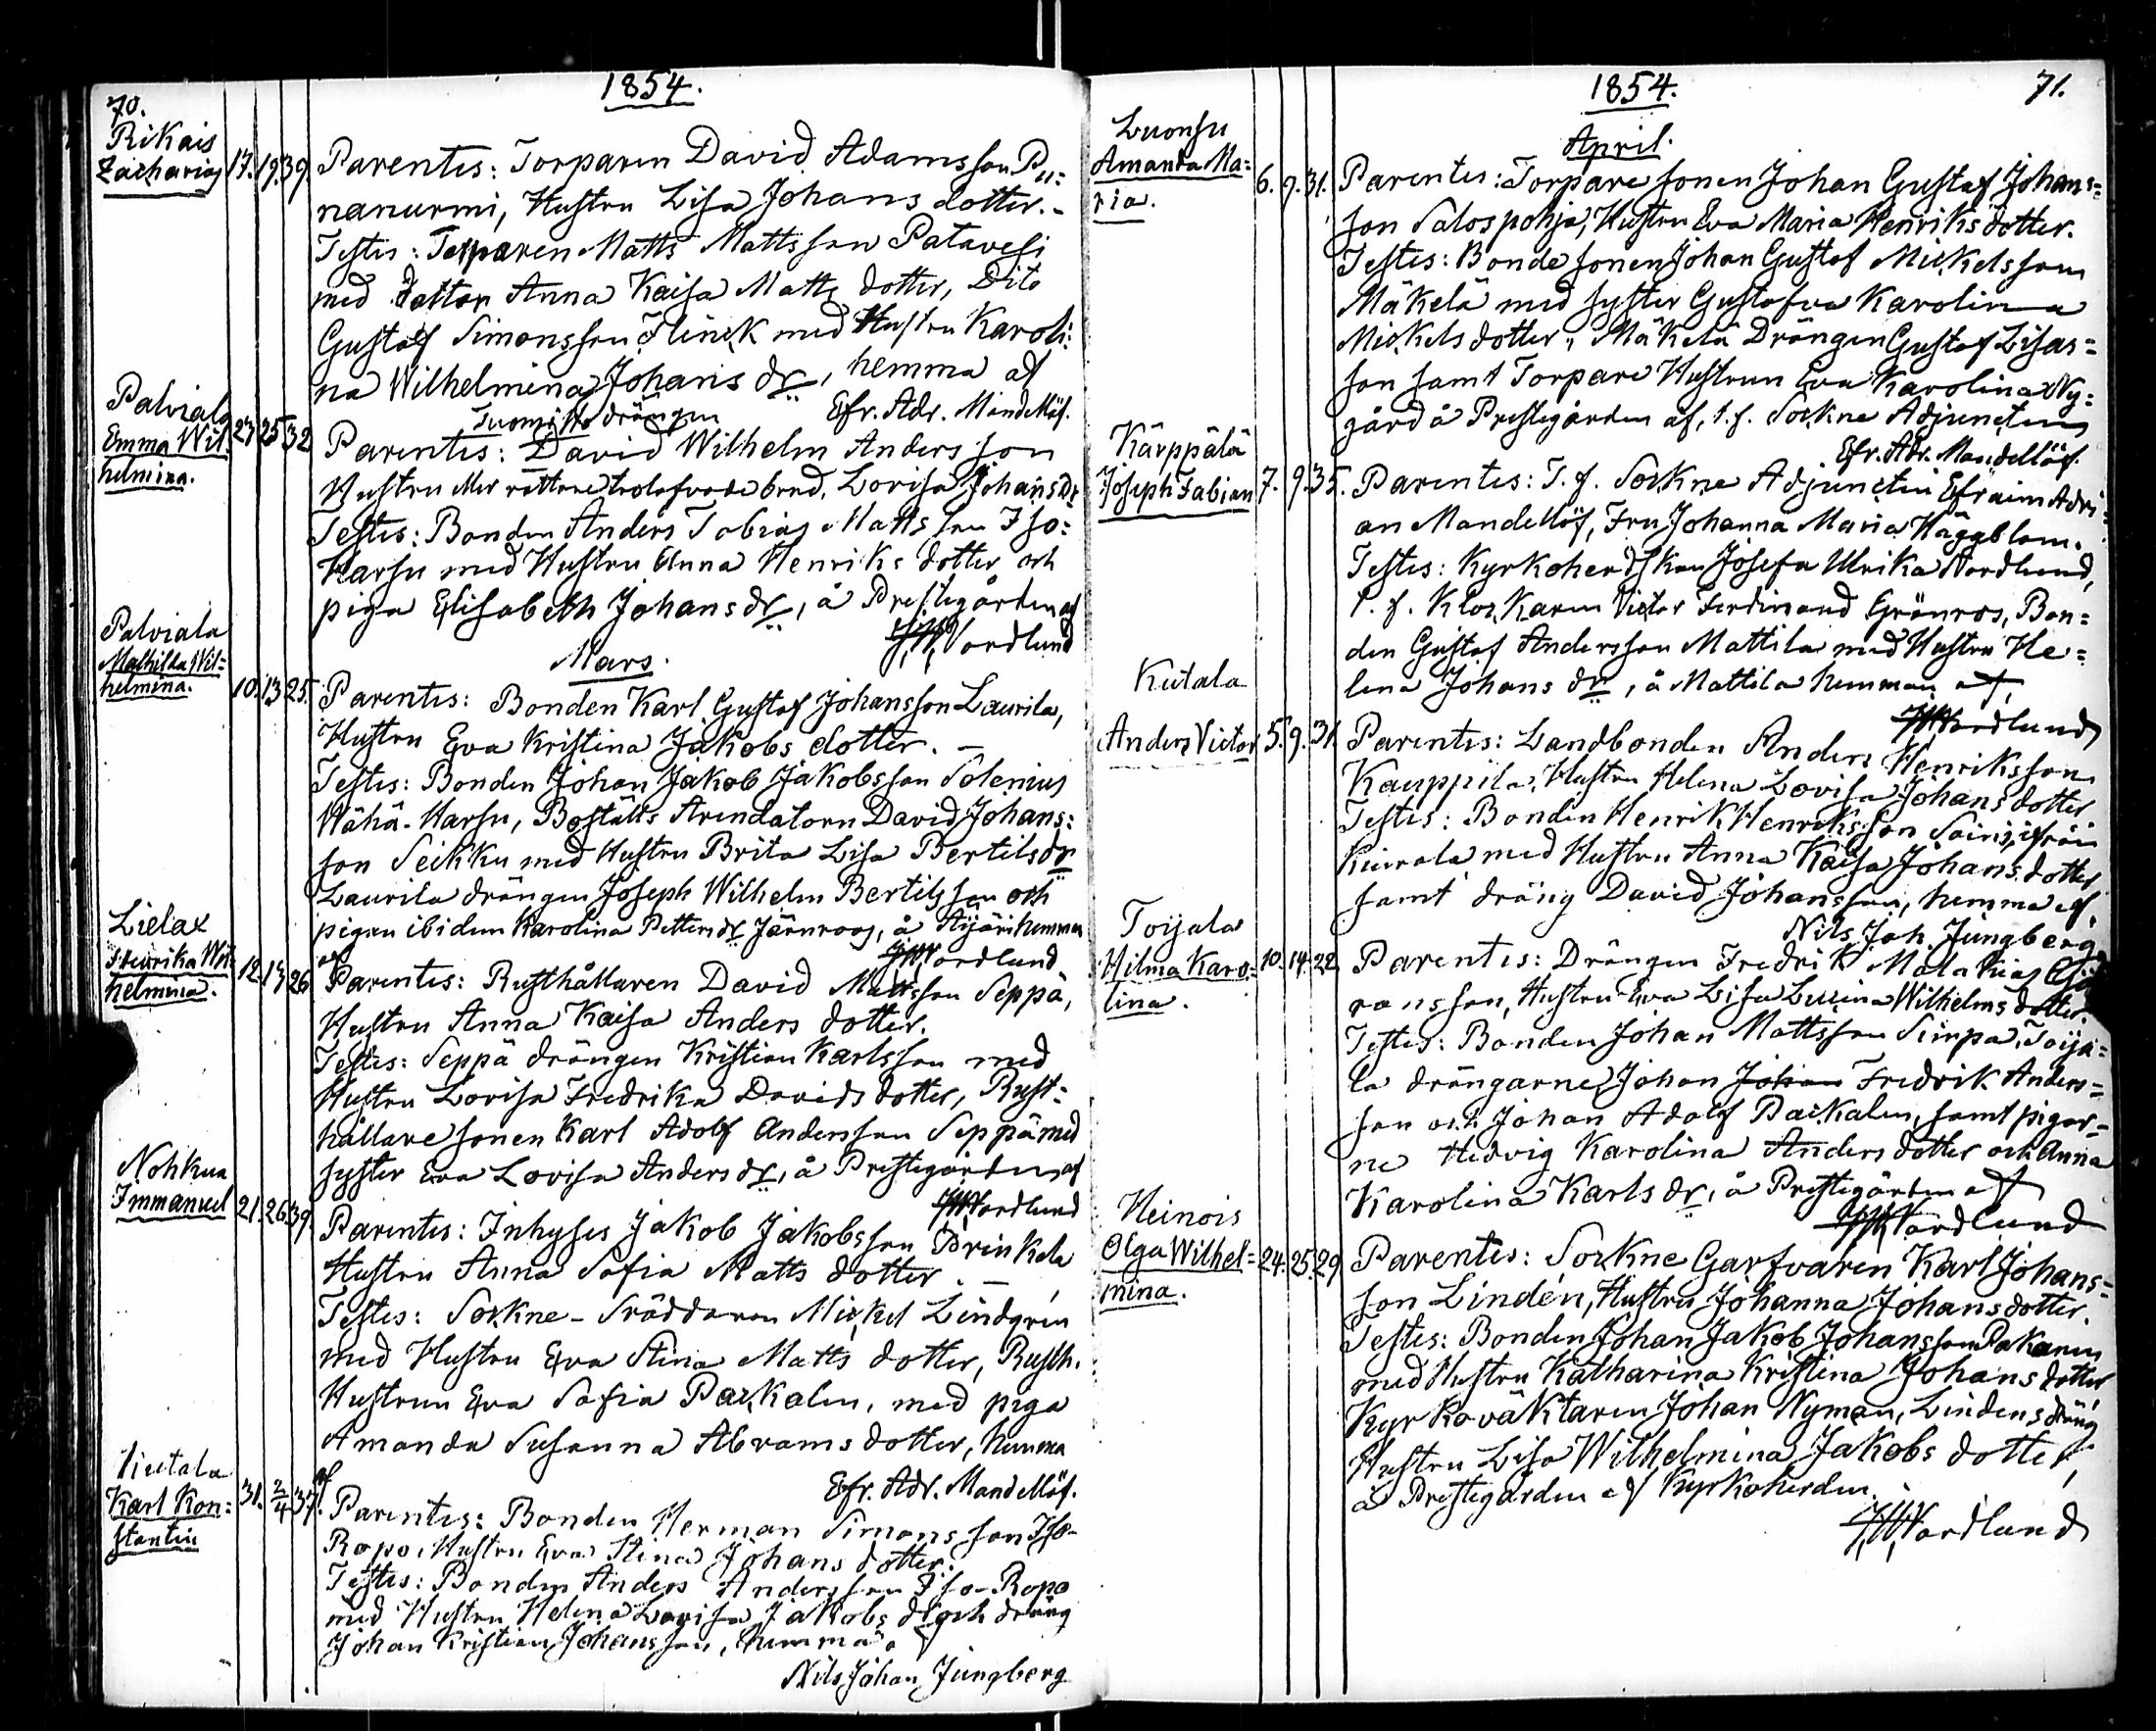 70.
1854.
Rikais
Zacharias 17. 19. 39.
Parentes: Torparen David Adamsson Pu=
nanurmi, Hustru Lisa Johans dotter. -
Testes: Torparen Matts Mattsson Patavesi
med dotter Anna Kaisa Matts dotter, Dito
Gustaf Simonsson Flinck med Hustru Karoli:
na Wilhelmina Johans dr, hemma af
Efr. Adr. Mandellöf.
Palviala
Emma Wil=
helmina.
23 25 32
Tuomisto drängen
Parentes: David Wilhelm Andersson
Hustru trolofvade Lovisa Johans dr
Testes: Bonden Anders Tobias Mattsson Iso=
Harsu med Hustru Anna Henriks dotter och
piga Elisabeth Johans dr, å Prestegården af
JWNordlund
Mars.
Palviala
Mathilda Wil=
helmina.
10. 13 25.
Parentes: Bonden Karl Gustaf Johansson Laurila,
Hustru Eva Kristina Jakobs dotter. -
Testes: Bonden Johan Jakob Jakobsson Polenius
Wähä-Harsu, Boställs Arendatorn David Johans:
son Seikku med Hustru Brita Lisa Bertils dr
Laurila drängen Joseph Wilhelm Bertilsson och
pigan ibidem Karolina Petters dr Järnroos, å Äijäri hemman
af JWNordlund
Lielax
Fredrika Wil=
helmina.
12. 13 26
Parentes: Rusthållaren David Mattsson Seppä,
Hustru Anna Kaisa Anders dotter.
Testes: Seppä drängen Kristian Karlsson med
Hustru Lovisa Fredrika Davids dotter, Rust=
hållare sonen Karl Adolf Andersson Seppä med
syster Eva Lovisa Anders dr, å Prestegården af
JWNordlund
Nohkua
Immanuel 21. 26. 39.
Parentes: Inhyses Jakob Jakobsson Prinkela
Hustru Anna Sofia Matts dotter. -
Testes: Sockne-Sräddaren Mickel Lindgren
med Hustru Eva Stina Matts dotter, Rusth.
Hustrun Eva Sofia Packalen, med piga
Amanda Susanna Abrams dotter, hemma
af
Efr. Adr. Mandellöf.
Kiutala
Karl Kon=
stantin
31. 2/4 37.
Parentes: Bonden Herman Simonsson Iso-
Ropo, Hustru Eva Stina Johans dotter.
Testes: Bonden Anders Andersson Iso-Ropo
med Hustru Helena Lovisa Jakobs dr och dräng
Johan Kristian Johansson, hemma a
Nils Johan Jungberg
1854.
71.
April.
Luonsu
Amanda Ma=
ria.
6. 9. 31.
Parentes: Torpare sonen Johan Gustaf Johans=
son Salospohja, Hustru Eva Maria Henriks dotter.
Testes: Bonde sonen Johan Gustaf Mickelsson
Mäkelä med syster Gustafva Karolina
Mickels dotter, Mäkelä Drängen Gustaf Lisas=
son samt Torpare Hustrun Eva Karolina Ny=
gård å Prestegården af, t. f. Sockne Adjuncten
Efr. Adr. Mandellöf.
Kärppälä
Joseph Fabian 7. 9. 35.
Parentes: T. f. Sockne Adjuncten Efraim Adri=
an Mandellöf, Fru Johanna Maria Häggblom.
Testes: Kyrkoherdskan Josefa Ulrika Nordlund,
t. f. Klockaren Victor Ferdinand Grönros, Bon=
den Gustaf Andersson Mattila med Hustru He=
lena Johans dr, å Mattila hemman af,
JWNordlund
Kiutala
Anders Victor 5. 9. 31.
Parentes: Landbonden Anders Henriksson
Kauppila, Hustru Helena Lovisa Johans dotter
Testes: Bonden Henrik Henriksson ifrån
med Hustru Anna Kaisa Johans dotter
samt dräng David Johansson, hemma af.
Nils Joh. Jungberg
Toijala
Hilma Karo=
lina.
10. 14. 22
Parentes: Drängen Fredrik Malakias
ransson, Hustru Eva Lisa Lusina Wilhelms dotter.
Testes: Bonden Johan Mattsson Simpa, Toija=
la drängarne Johan Johan Fredrik Anders=
son och Johan Adolf Packalen, samt pigor=
ne Hedvig Karolina Anders dotter och Anna
Karolina Karls dr, å Prestegården af
JWNordlund
Heinois
Olga Wilhel=
mina.
24. 25. 29
Parentes: Sockne Garfvaren Karl Johans=
son Lindén, Hustru Johanna Johans dotter.
Testes: Bonden Johan Jakob Johansson Pakanen
med Hustru Katharina Kristina Johans dotter
Kyrkoväktaren Johan Nyman, Lindens dräng
Hustru Lisa Wilhelmina Jakobs dotter,
å Prestegården af Kyrkoherden.
JWNordlund